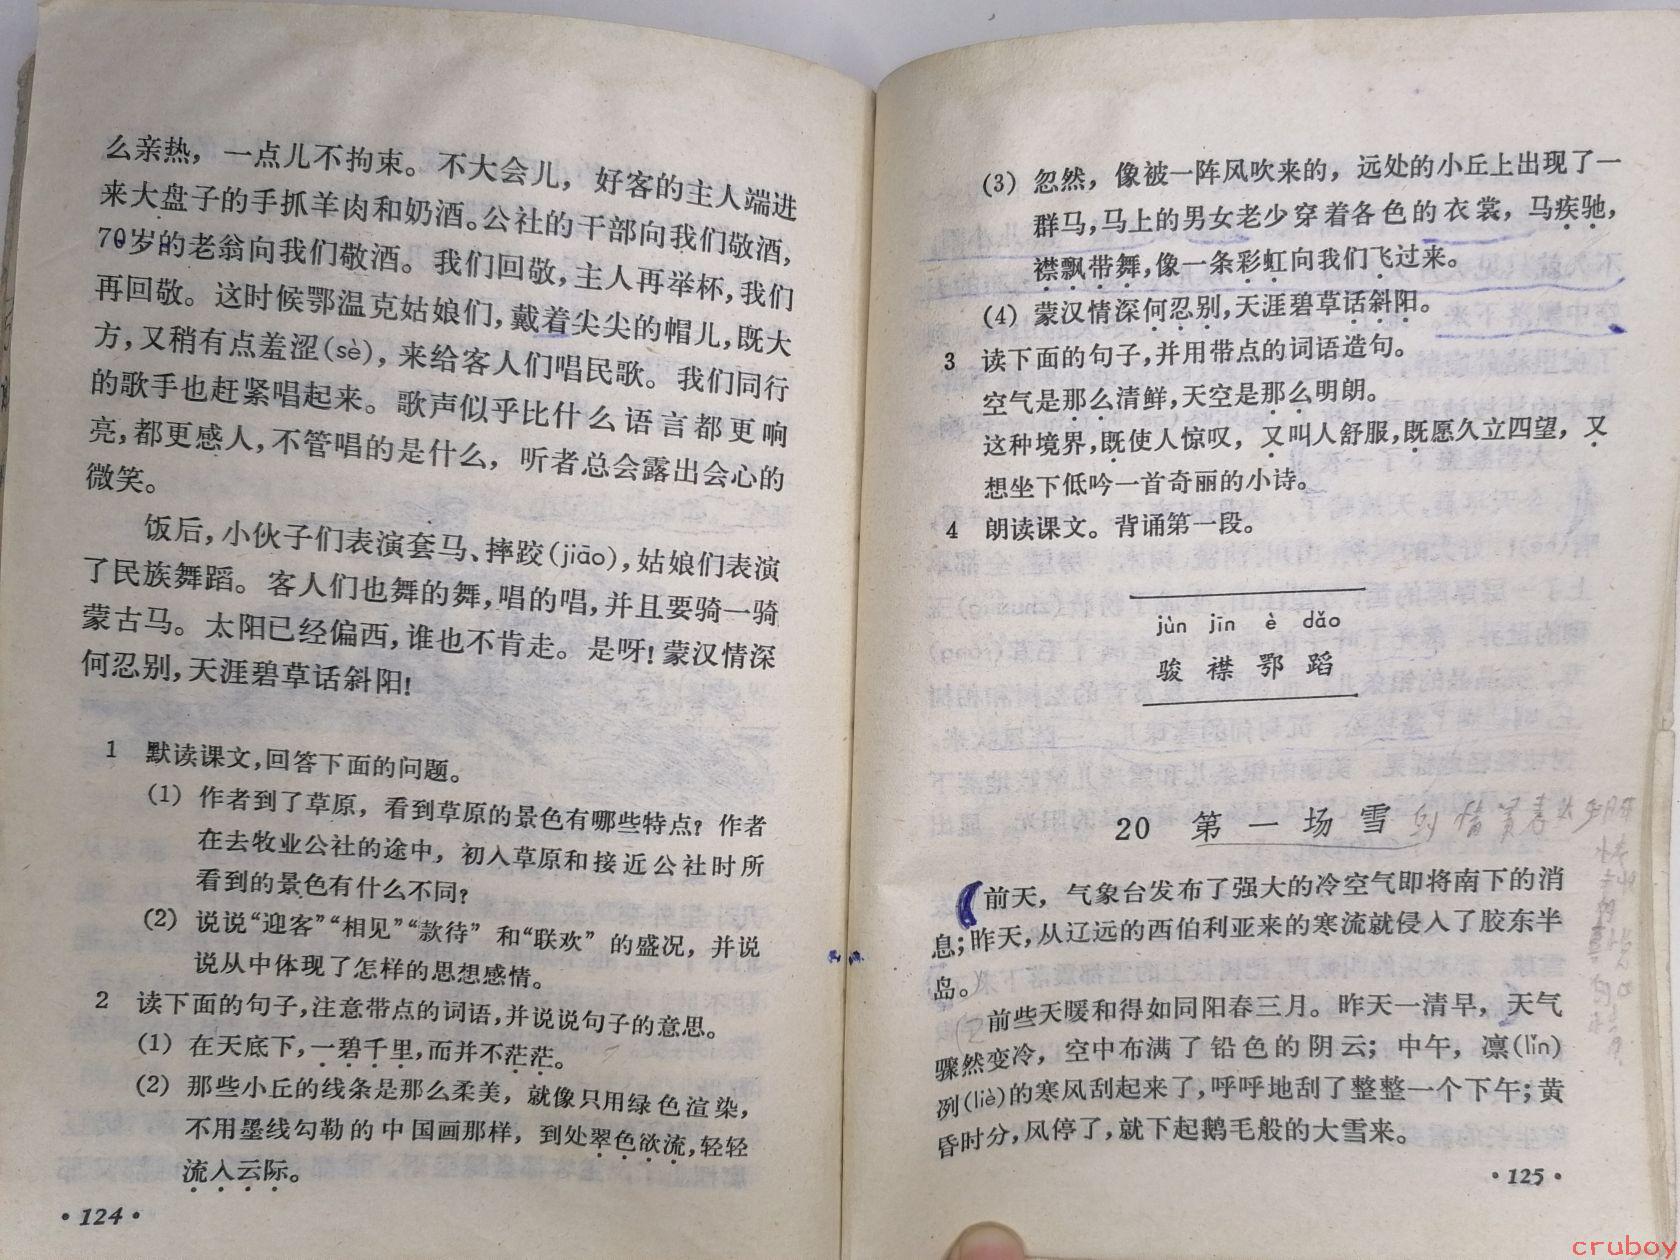 么亲热，一点儿不拘束。不大会儿，好客的主人端进
来大盘子的手抓羊肉和奶酒。公社的干部向我们敬酒，
70岁的老翁向我们敬酒。我们回敬，主人再举杯，我们
再回敬。这时候鄂温克姑娘们，戴着尖尖的帽儿，既大
方，又稍有点羞涩(sè)，来给客人们唱民歌。我们同行
的歌手也赶紧唱起来。歌声似乎比什么语言都更响
亮，都更感人，不管唱的是什么，听者总会露出会心的
微笑。
饭后，小伙子们表演套马、摔跤(jiāo)，姑娘们表演
了民族舞蹈。客人们也舞的舞，唱的唱，并且要骑一骑
蒙古马。太阳已经偏西，谁也不肯走。是呀！蒙汉情深
何忍别，天涯碧草话斜阳！
1 默读课文，回答下面的问题。
(1) 作者到了草原，看到草原的景色有哪些特点？作者
在去牧业公社的途中，初入草原和接近公社时所
看到的景色有什么不同？
(2) 说说“迎客”“相见”“款待”和“联欢”的盛况，并说
说从中体现了怎样的思想感情。
2 读下面的句子，注意带点的词语，并说说句子的意思。
(1) 在天底下，一碧千里，而并不茫茫。
(2) 那些小丘的线条是那么柔美，就像只用绿色渲染，
不用墨线勾勒的中国画那样，到处翠色欲流，轻轻
流入云际。
·124·
(3) 忽然，像被一阵风吹来的，远处的小丘上出现了一
群马，马上的男女老少穿着各色的衣裳，马疾驰，
襟飘带舞，像一条彩虹向我们飞过来。
(4) 蒙汉情深何忍别，天涯碧草话斜阳。
3 读下面的句子，并用带点的词语造句。
空气是那么清鲜，天空是那么明朗。
这种境界，既使人惊叹，又叫人舒服，既愿久立四望，又
想坐下低吟一首奇丽的小诗。
4 朗读课文。背诵第一段。
jùn jīn è dǎo
骏 襟 鄂 蹈
20 第一场雪
前天，气象台发布了强大的冷空气即将南下的消
息；昨天，从辽远的西伯利亚来的寒流就侵入了胶东半
岛。
前些天暖和得如同阳春三月。昨天一清早，天气
骤然变冷，空中布满了铅色的阴云；中午，凛(lǐn)
冽(liè)的寒风刮起来了，呼呼地刮了整整一个下午；黄
昏时分，风停了，就下起鹅毛般的大雪来。
·125·
cruboy